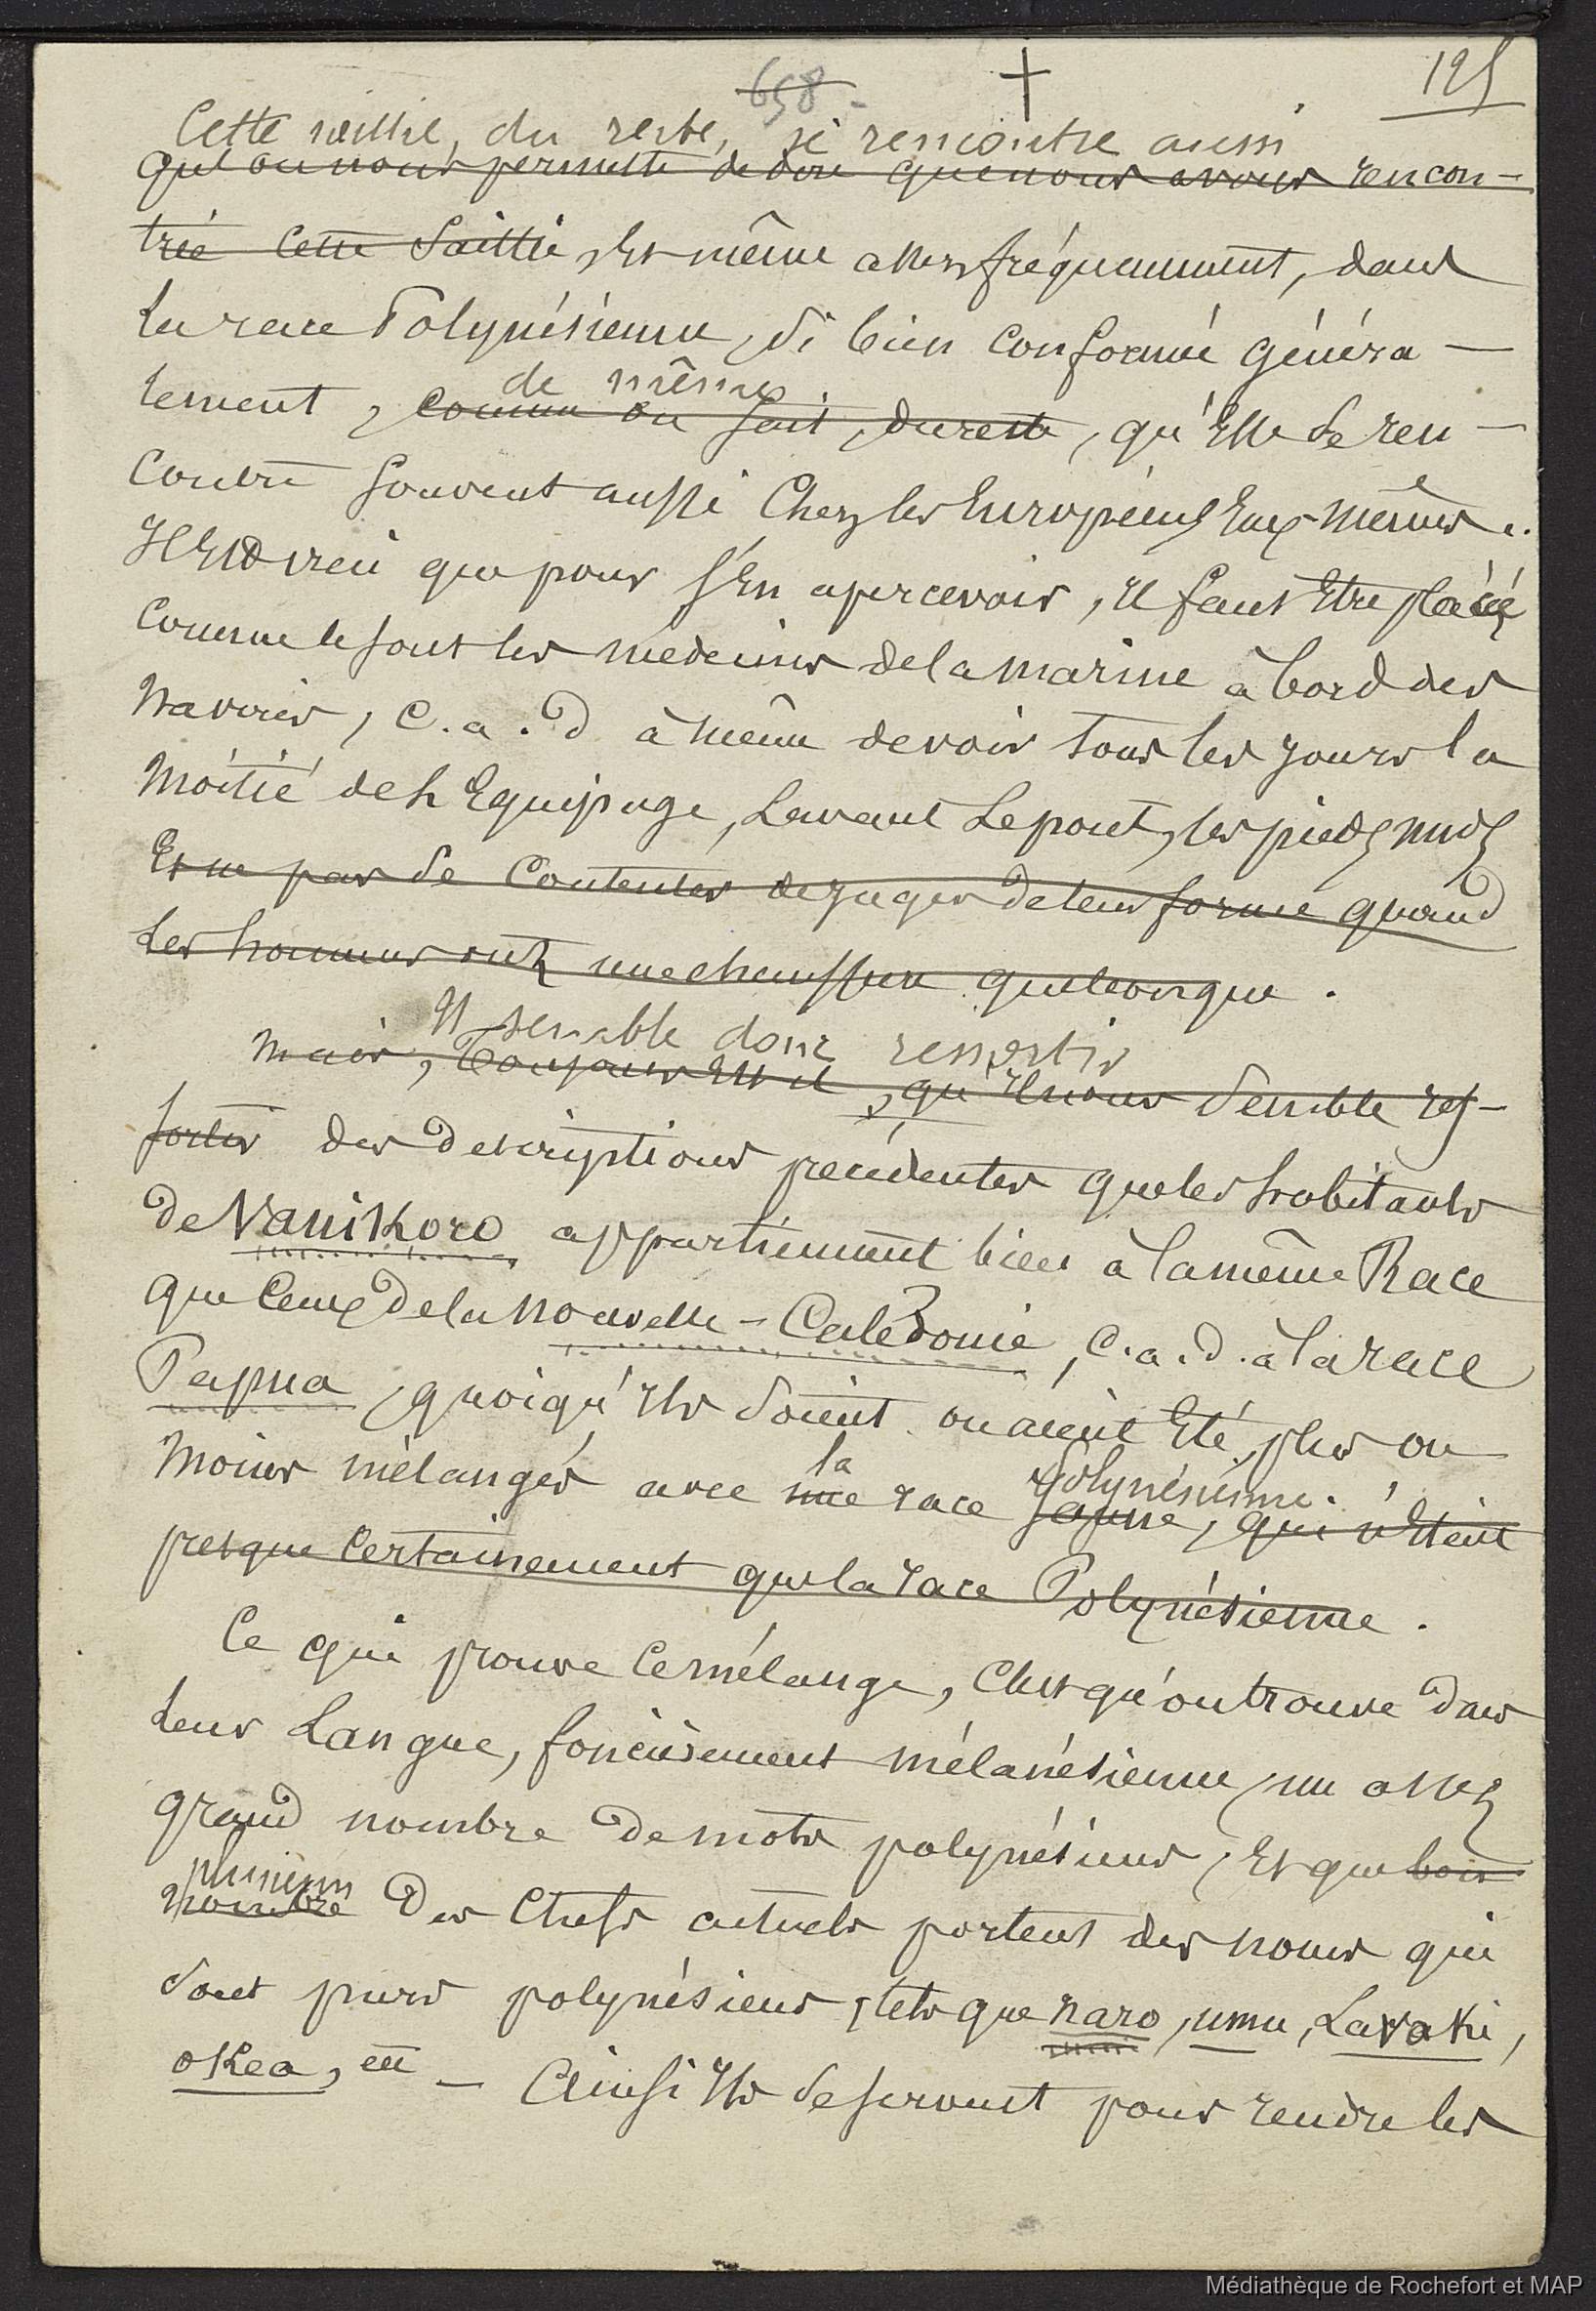 658 -
125
Cette saillie, du reste, se rencontre aussi
qu'on nous permette de dire que nous avons rencon-
trée cette Saillie, Et même assez fréquemment, dans
la race Polynésienne, si bien conformée généra-
lement, de même
comme on sait, du reste, qu'Elle se ren-
contre souvent aussi chez les Européens Eux-mêmes.
Il Est vrai que pour s'En apercevoir, Il faut Etre placé
comme le sont les médecins de la marine à bord des
navires, c.a.d à même de voir tous les jours la
moitié de l'Equipage, Lavant Le pont, les pieds nuds
Et ne pas se contenter de juger de leur forme quand
les hommes ont une chaussure quelconque.
Il semble donc ressortir
mais, Toujours Est il, qu'Il nous semble res-
sortir des descriptions précédentes que les habitants
de Vanikoro appartiennent bien à la même Race
que ceux de la Nouvelle-Calédonie, c.a.d. à la race
Papua, quoiqu'Ils soient ou aient Eté, plus ou
moins mélangés avec la
une race polynésienne.
jaune, qui n'était
presque certainement que la race Polynésienne.
Ce qui prouve ce mélange, c'est qu'on trouve dans
leur Langue, foncièrement mélanésienne, un assez
grand nombre de mots polynésiens, Et que bon
plusieurs
nombre des chefs actuels portent des noms qui
sont purs polynésiens, tels que naro, umu, Lavaki,
okea, etc — Ainsi Ils se servent pour rendre les
Médiathèque de Rochefort et MAP